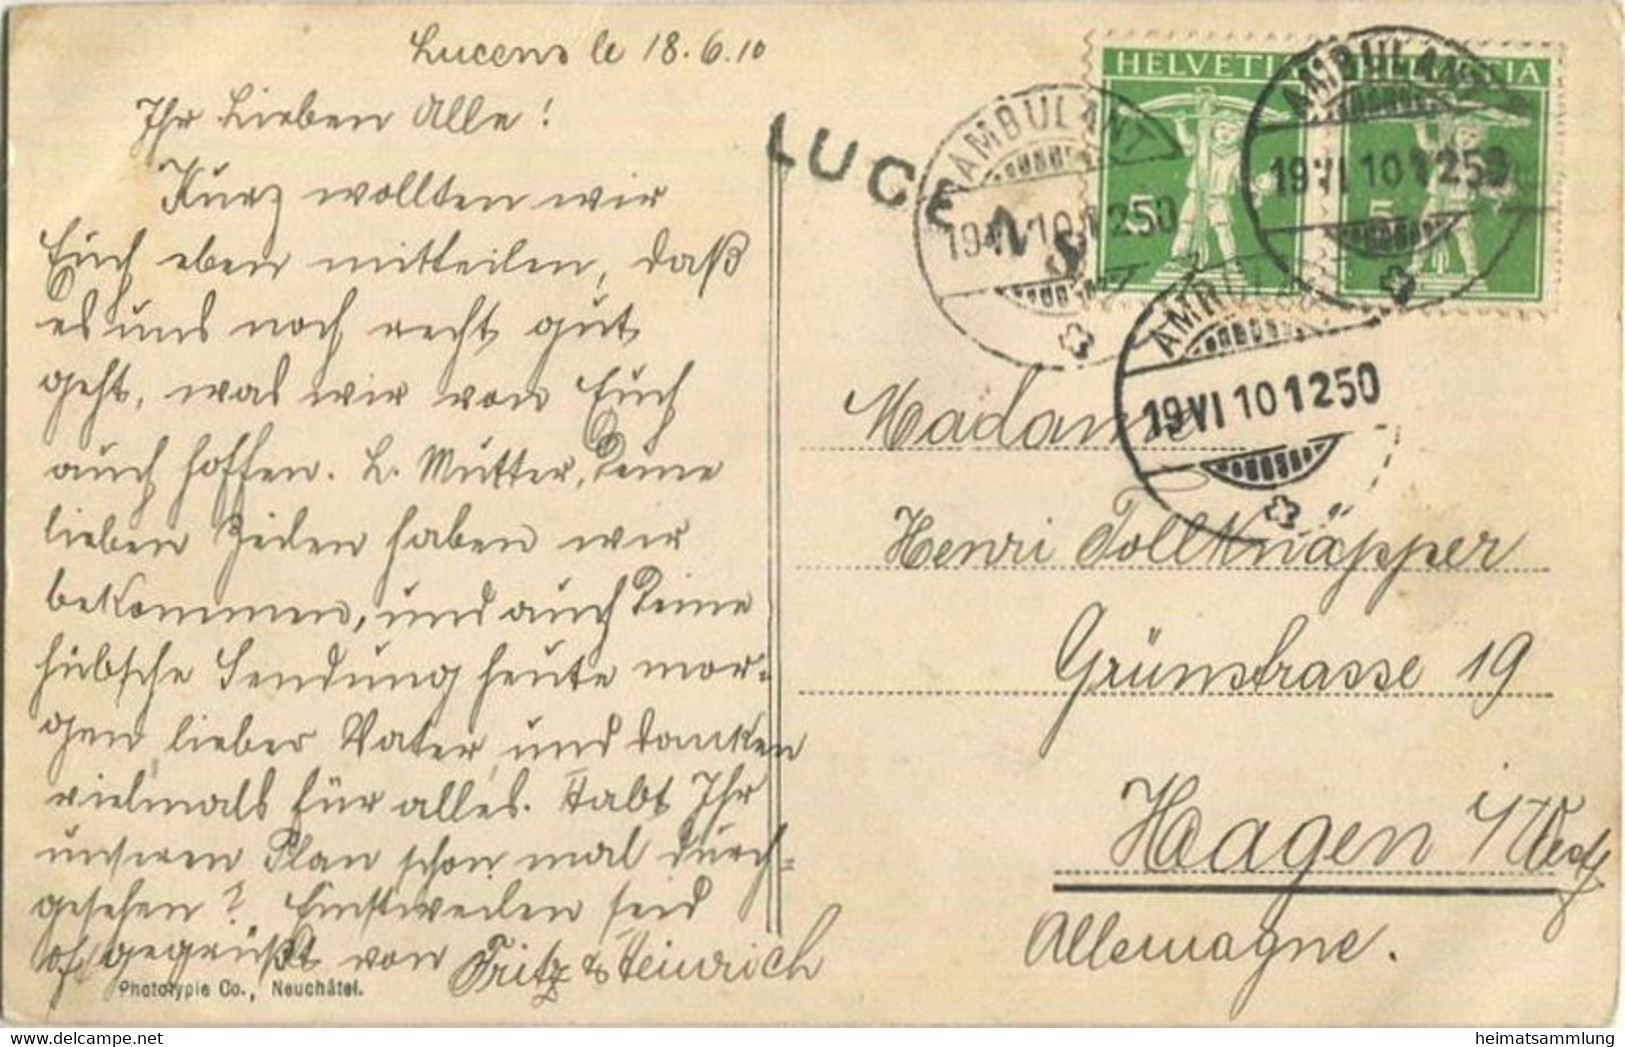 Lucens le 18.6.10
Ihr Lieben Alle!
Kurz wollten wir
Euch eben mitteilen, daß
es uns noch recht gut
geht, was wir von Euch
auch hoffen. L. Mutter, Deine
lieben Zeilen haben wir
bekommen, und auch Deine
hübsche Sendung heute mor-
gen lieber Vater, und danken
vielmals für alles. Habt Ihr
unseren Plan schon mal durch-
gesehen? Einstweilen seid
gegrüßt von Fritz & Heinrich
Phototypie Co., Neuchâtel.
LUCENS
HELVETIA
5
AMBULANT
19 VI 10 1250
HELVETIA
5
AMBULANT
19 VI 10 1250
AMBULANT
19 VI 10 1250
Madame
Henri Tollknäpper
Grünstrasse 19
Hagen i/Westf
Allemagne.
delcampe.net
heimatsammlung